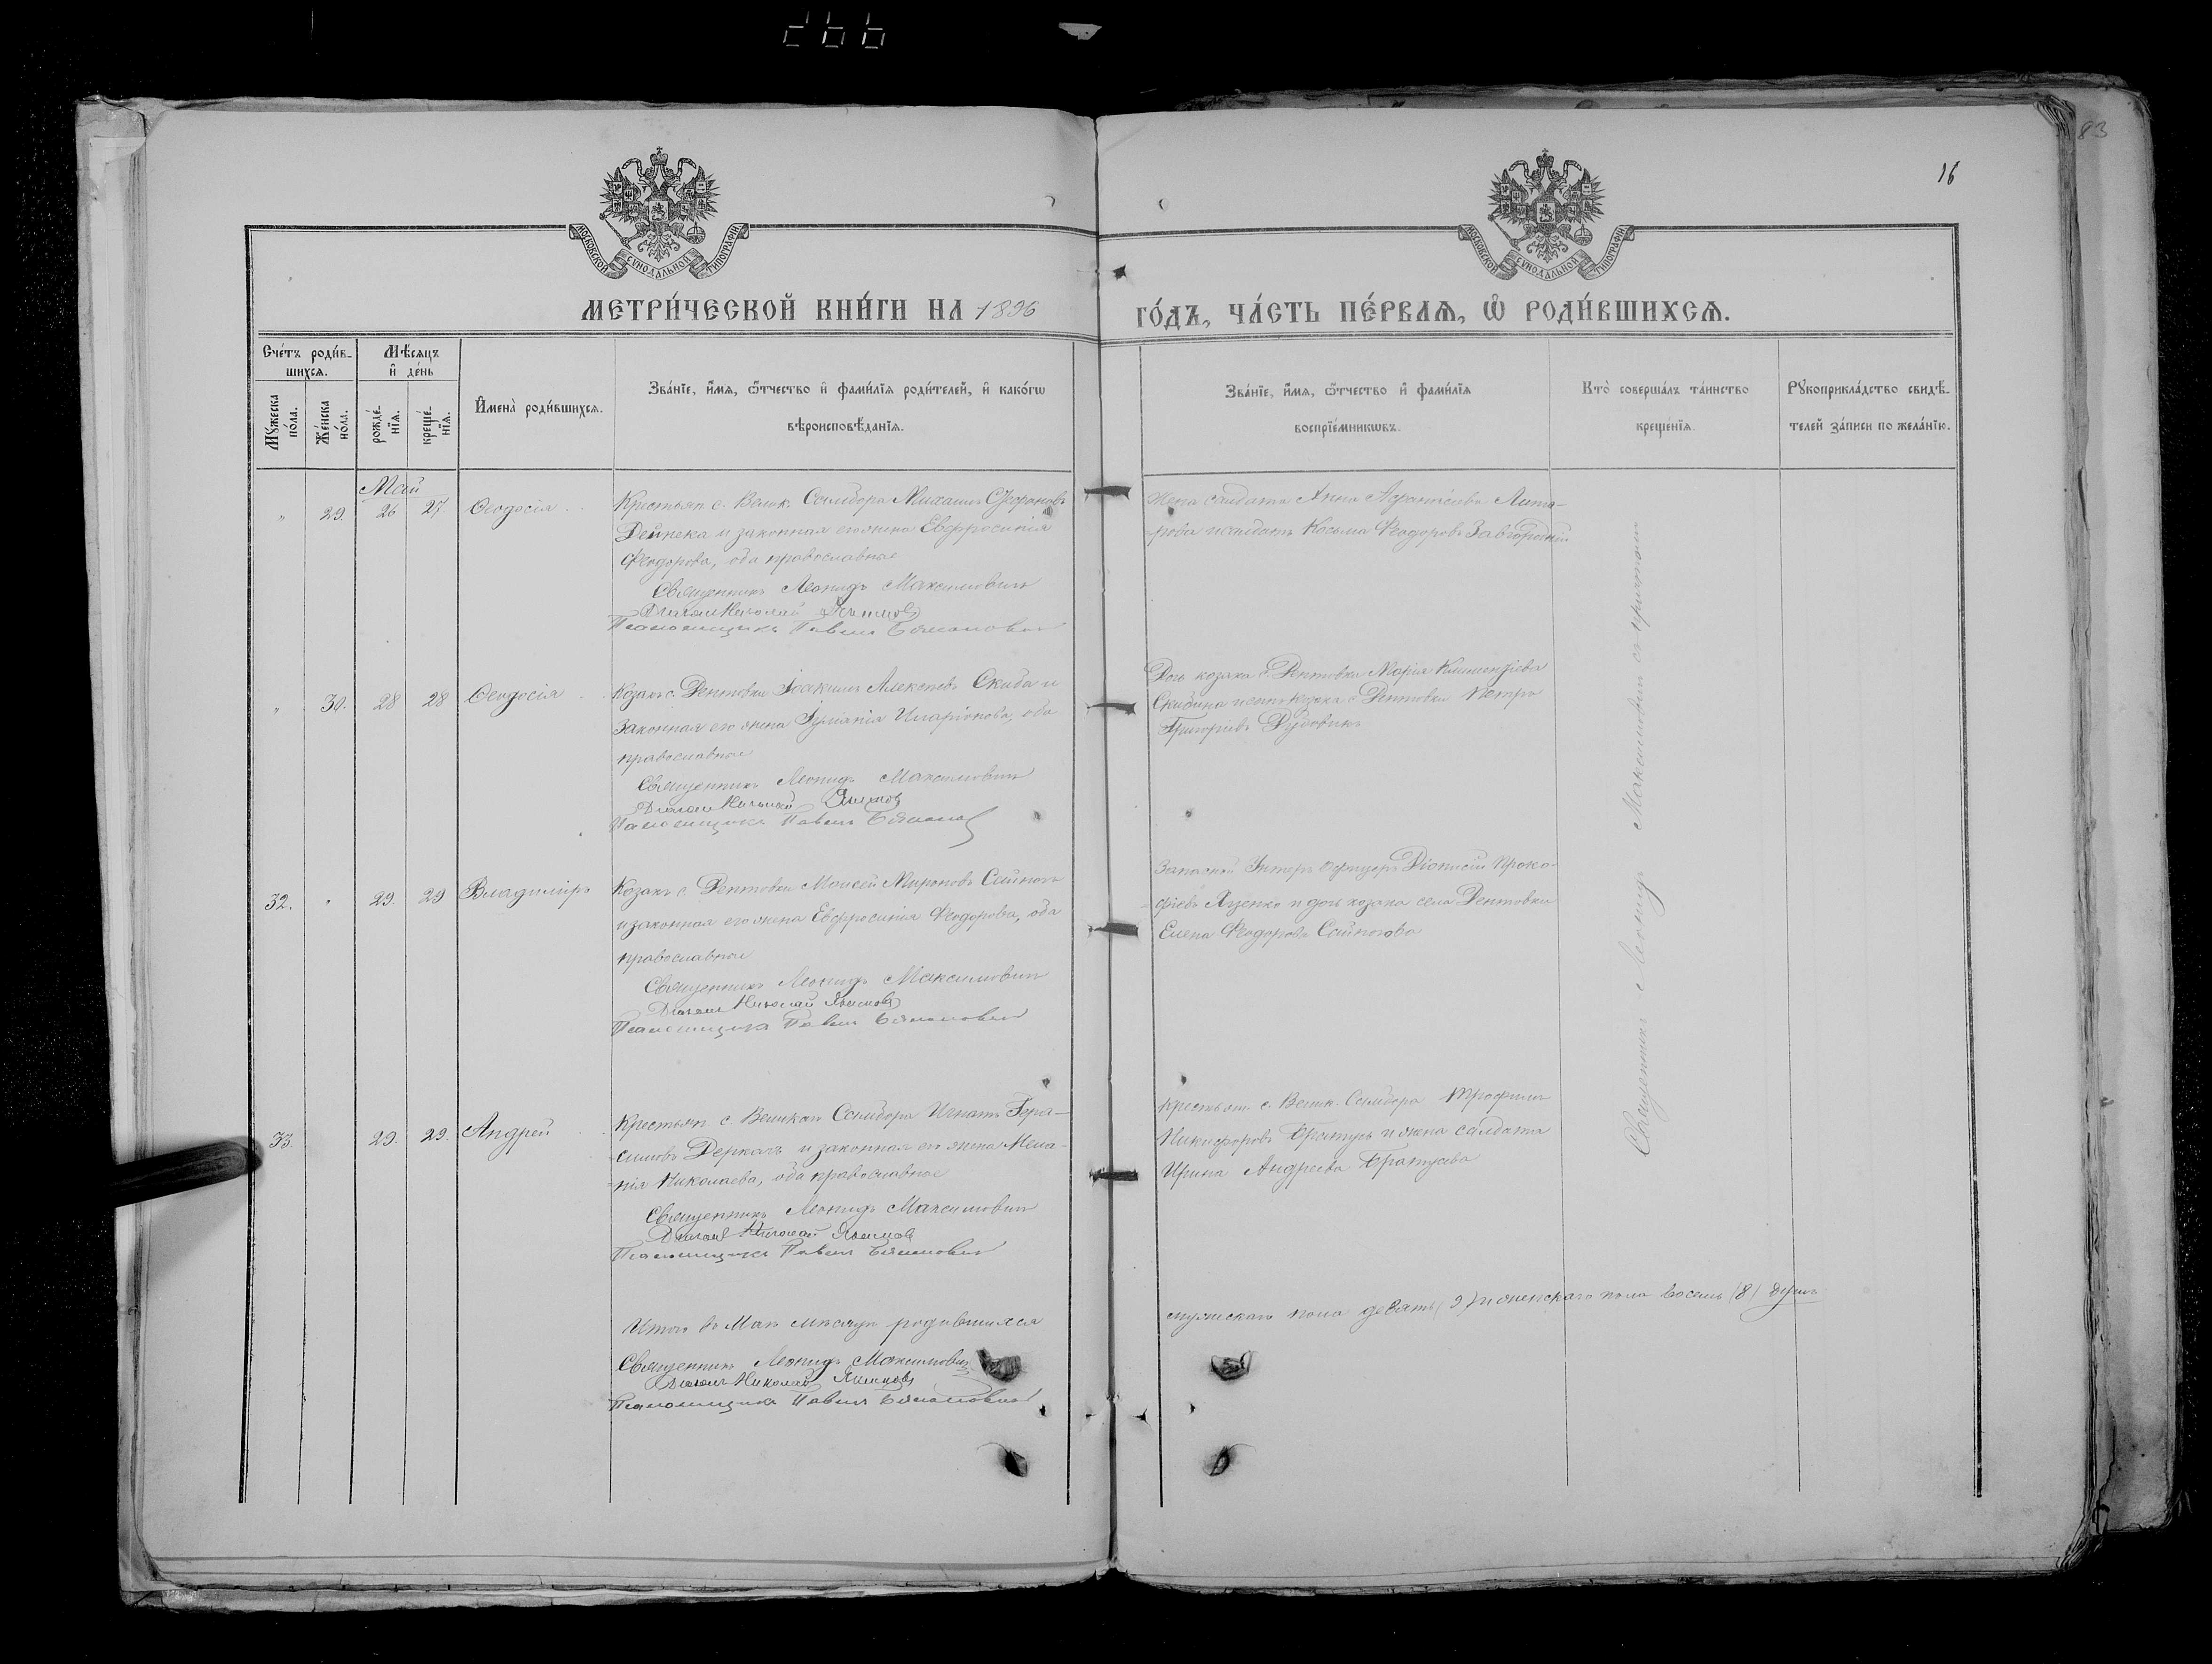 266
83
16
МОСКОВСКОЙ СѴНОДАЛЬНОЙ ТИПОГРАФІИ
МОСКОВСКОЙ СѴНОДАЛЬНОЙ ТИПОГРАФІИ
МЕТРИ́ЧЕСКОЙ КНИ́ГИ НА 1896
ГО́ДЪ, ЧА́СТЬ ПЕ́РВАѦ, Ѡ҆ РОДИ́ВШИХСѦ.
Сче́тъ роди́в-
шихсѧ.
Мѣ́сяцъ
и҆ де́нь
Мꙋ́жеска
по́ла.
Же́нска
по́ла.
рожде́-
нїѧ.
креще́-
нїѧ.
И҆мена̀ роди́вшихсѧ.
Зва́нїе, и҆́мѧ, ѻ҆́тчество и҆ фами́лїѧ роди́телей, и҆ како́гѡ
вѣроисповѣ́данїѧ.
Зва́нїе, и҆́мѧ, ѻ҆́тчество и҆ фами́лїѧ
воспрїе́мникѡвъ.
Кто̀ соверша́лъ та́инство
креще́нїѧ.
Рꙋкоприкла́дство свидѣ́-
телей за́писи по жела́нїю.
Май
" 29. 26 27 Ѳеодосія
Крестьян. с. Велик. Самбора Михаилъ
Дейнека и законная его жена Евфросинія
Феодорова, оба православные
Священникъ Леонидъ Максимовичъ
Діаконъ Николай Якимовъ
Псаломщикъ Павелъ
Жена солдата Анна Лита-
рова и солдатъ Косьма Феодоровъ Завгородній
" 30. 28 28 Ѳеодосія
Козакъ с. Рептовки Іоакимъ Алексѣевъ Скиба и
законная его жена Іуліанія Иларіонова, оба
православные
Священникъ Леонидъ Максимовичъ
Діаконъ Николай Якимовъ
Псаломщикъ Павелъ
Дочь козака с. Рептовки Марія Климентіева
Скибина и сынъ козака с. Рептовки Петръ
Григоріевъ Дудовикъ
32. " 29. 29 Владиміръ
Козакъ с. Рептовки Моисей Мироновъ
и законная его жена Евфросинія Феодорова, оба
православные
Священникъ Леонидъ Максимовичъ
Діаконъ Николай Якимовъ
Псаломщикъ Павелъ
Запасной Унтеръ Офицеръ Діонисій Проко-
фіевъ Яценко и дочь козака села Рептовки
Елена Феодорова
33. 29. 29. Андрей
Крестьян. с. Великаго Самбора Игнатъ Гера-
симовъ Деркачъ и законная его жена Мела-
нія Николаева, оба православные
Священникъ Леонидъ Максимовичъ
Діаконъ Николай Якимовъ
Псаломщикъ Павелъ
Крестьян. с. Велик. Самбора Трофимъ
Никифоровъ Братусь и жена солдата
Ирина Андреева Братусева
Священникъ Леонидъ Максимовичъ съ причтомъ
Итого въ Маѣ мѣсяцѣ родившихся
мужскаго пола девять (9) и женскаго пола восемь (8) душъ
Священникъ Леонидъ Максимовичъ
Діаконъ Николай Якимовъ
Псаломщикъ Павелъ